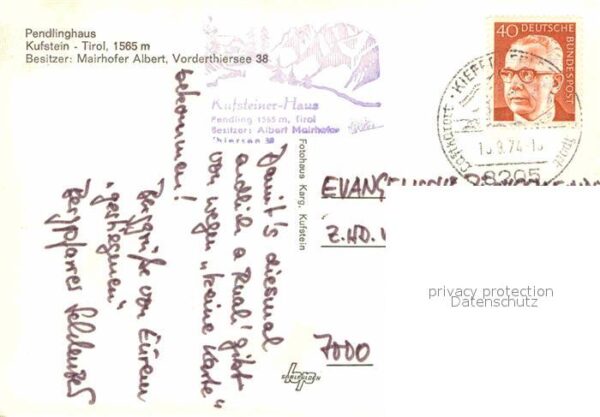 Pendlinghaus
Kufstein - Tirol, 1565 m
Besitzer: Mairhofer Albert, Vorderthiersee 38
Kufsteiner-Haus
Pendling 1565 m, Tirol
Besitzer: Albert Mairhofer
Thiersee 38
40 DEUTSCHE
BUNDESPOST
8205
Fotohaus Karg, Kufstein
Damit's diesmal
endlich a Ruah' gibt
von wegen "keine Karte"
bekommen!
Berggrüße von Eurem
"gestiegenen"
Bergpfarrer
EVANGELISCHE
Z.HD.
7000
privacy protection
Datenschutz